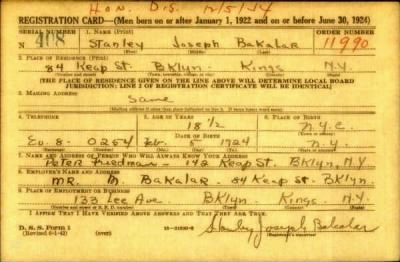 Hon. Dis. 12/5/54
REGISTRATION CARD—(Men born on or after January 1, 1922 and on or before June 30, 1924)
SERIAL NUMBER 1. NAME (Print) ORDER NUMBER
N 408 Stanley Joseph Bakalar 11990
(First) (Middle) (Last)
2. PLACE OF RESIDENCE (Print)
84 Keap St. Bklyn Kings N.Y.
(Number and street) (Town, township, village, or city) (County) (State)
[THE PLACE OF RESIDENCE GIVEN ON THE LINE ABOVE WILL DETERMINE LOCAL BOARD
JURISDICTION; LINE 2 OF REGISTRATION CERTIFICATE WILL BE IDENTICAL]
3. MAILING ADDRESS
Same
4. TELEPHONE 5. AGE IN YEARS 6. PLACE OF BIRTH
18 1/2 N.Y.C.
DATE OF BIRTH
Ev 8-0254 Feb. 5 1924 N.Y.
7. NAME AND ADDRESS OF PERSON WHO WILL ALWAYS KNOW YOUR ADDRESS
Peter Friedman 142 Keap St. Bklyn, N.Y.
8. EMPLOYER'S NAME AND ADDRESS
Mr. M. Bakalar 84 Keap St. Bklyn
9. PLACE OF EMPLOYMENT OR BUSINESS
133 Lee Ave Bklyn Kings N.Y.
(Number and street or R. F. D. number) (Town) (County) (State)
I AFFIRM THAT I HAVE VERIFIED ABOVE ANSWERS AND THAT THEY ARE TRUE.
D. S. S. Form 1
(Revised 6-1-42) (over) Stanley Joseph Bakalar